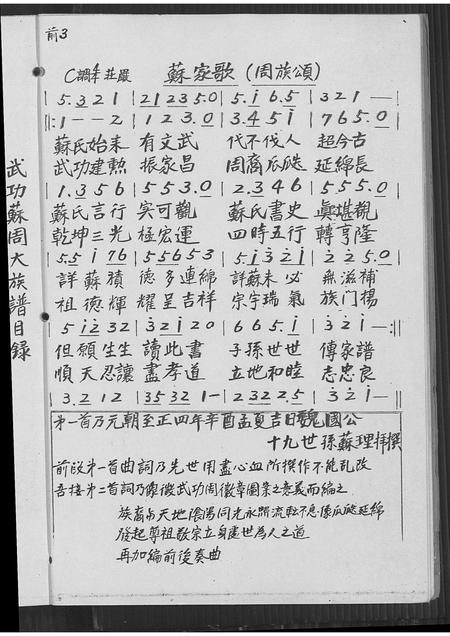 前3
C調4/4 莊嚴 蘇家歌 (周族頌)
| 5. 3 2 1 | 21 23 5.0 | 5. i 6. 5 | 3 2 1 — |
|: 1 — — 2 | 1 2 3.0 | 3. 4 5 i | 7 6 5.0 |
蘇氏始来 有文武 代不伐人 超今古
武功建勲 振家昌 周裔瓜瓞 延綿長
| 1. 3 5 6 | 5 5 3.0 | 2. 3 4 6 | 5 5 5.0 |
蘇氏言行 实可觀 蘇氏書史 眞堪觀
乾坤三光 極宏運 四時五行 轉亨隆
| 5.5 i 76 | 55 65 3 | 5 5 i 3 | 2 2 5.0 |
詳蘇積 德多連綿 詳蘇未必 無滋補
祖德輝 耀呈吉祥 宗宇瑞氣 族门楊
5 i2 32 | 3 2 i 20 | 6 6 5 i | 3 2 i — :|
但願生生 讀此書 子孫世世 傳家譜
順天忍讓 盡孝道 立地和睦 志忠良
| 3. 2 1 2 | 35 32 1 — | 2 32 2 5 | 3 2 1 — :|
第一首乃元朝至正四年辛酉孟夏吉日魏國公
十九世孫蘇理拝撰
前段第一首曲詞乃先世用盡心血所撰作不能乱改
吾接第二首詞乃像徵武功周徽章圖案之意義而編之
族裔与天地陰陽同光永熙流転不息像瓜瓞延綿
發起尊祖敬宗立身處世為人之道
再加編前後奏曲
武功蘇周大族譜目錄